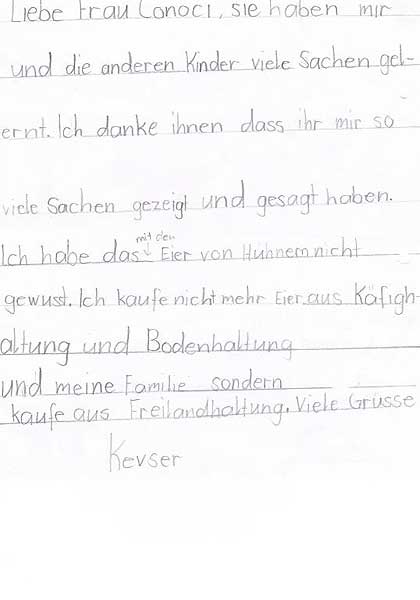 Liebe Frau Conoci, sie haben mir
und die anderen Kinder viele Sachen gel-
ernt. Ich danke ihnen dass ihr mir so
viele Sachen gezeigt und gesagt haben.
mit den
Ich habe das Eier von Hühnern nicht
gewusst. Ich kaufe nicht mehr Eier aus Käfigh-
altung und Bodenhaltung
und meine Familie sondern
kaufe aus Freilandhaltung. Viele Grüsse
Kevser